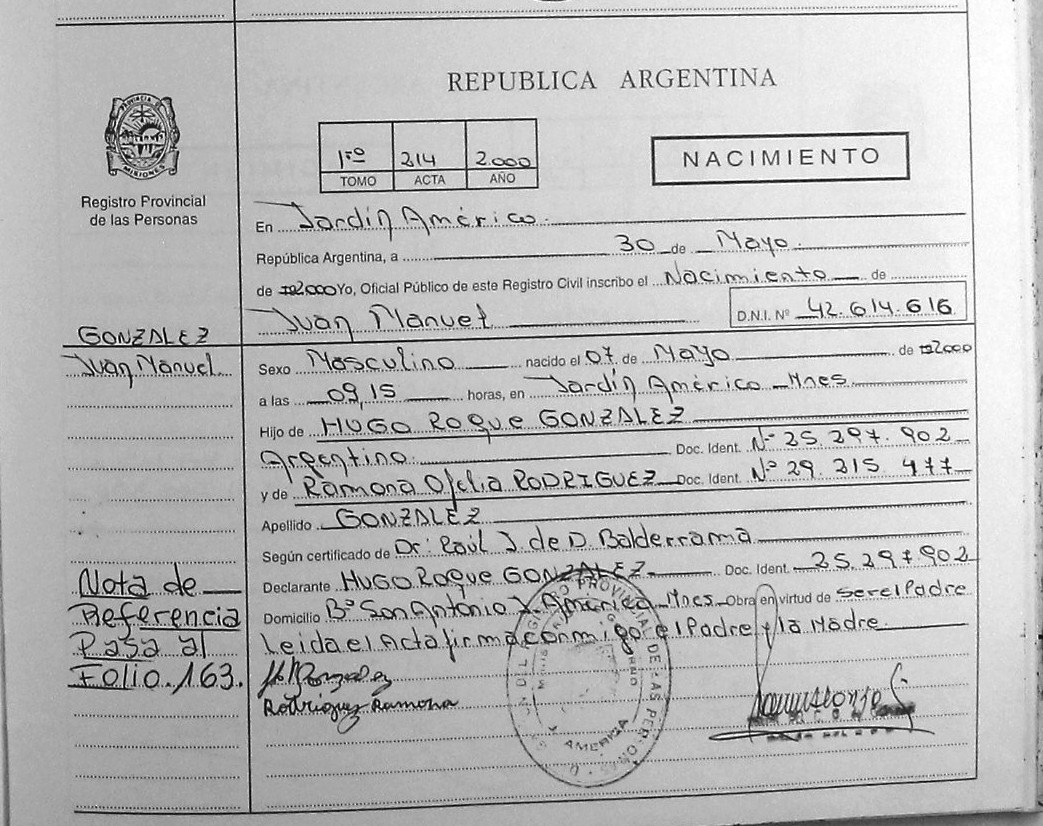 REPUBLICA ARGENTINA
PROVINCIA DE MISIONES
Registro Provincial
de las Personas
1ro 214 2.000
TOMO ACTA AÑO
NACIMIENTO
En Jardín América.
República Argentina, a 30 de Mayo.
de 2.000 Yo, Oficial Público de este Registro Civil inscribo el Nacimiento de
Juan Manuel D.N.I. Nº 42.614.616
GONZALEZ
Juan Manuel
Sexo Masculino nacido el 07 de Mayo de 2.000
a las 09,15 horas, en Jardín América Mnes
Hijo de HUGO Roque GONZALEZ
Argentino. Doc. Ident. Nº 25.297.902
y de Ramona Ofelia RODRIGUEZ Doc. Ident. Nº 29.215.477
Apellido GONZALEZ
Según certificado de Dr: Raúl J. de D. Balderrama
Declarante HUGO Roque GONZALEZ Doc. Ident. 25.297.902
Domicilio Bº San Antonio J. América Mnes Obra en virtud de ser el Padre
Leida el Acta firma conmigo el Padre y la Madre.
Nota de
Referencia
Pasa al
Folio.163.
H Gonzalez
Rodriguez Ramona
REGISTRO PROVINCIAL DE LAS PERSONAS
J. AMERICA